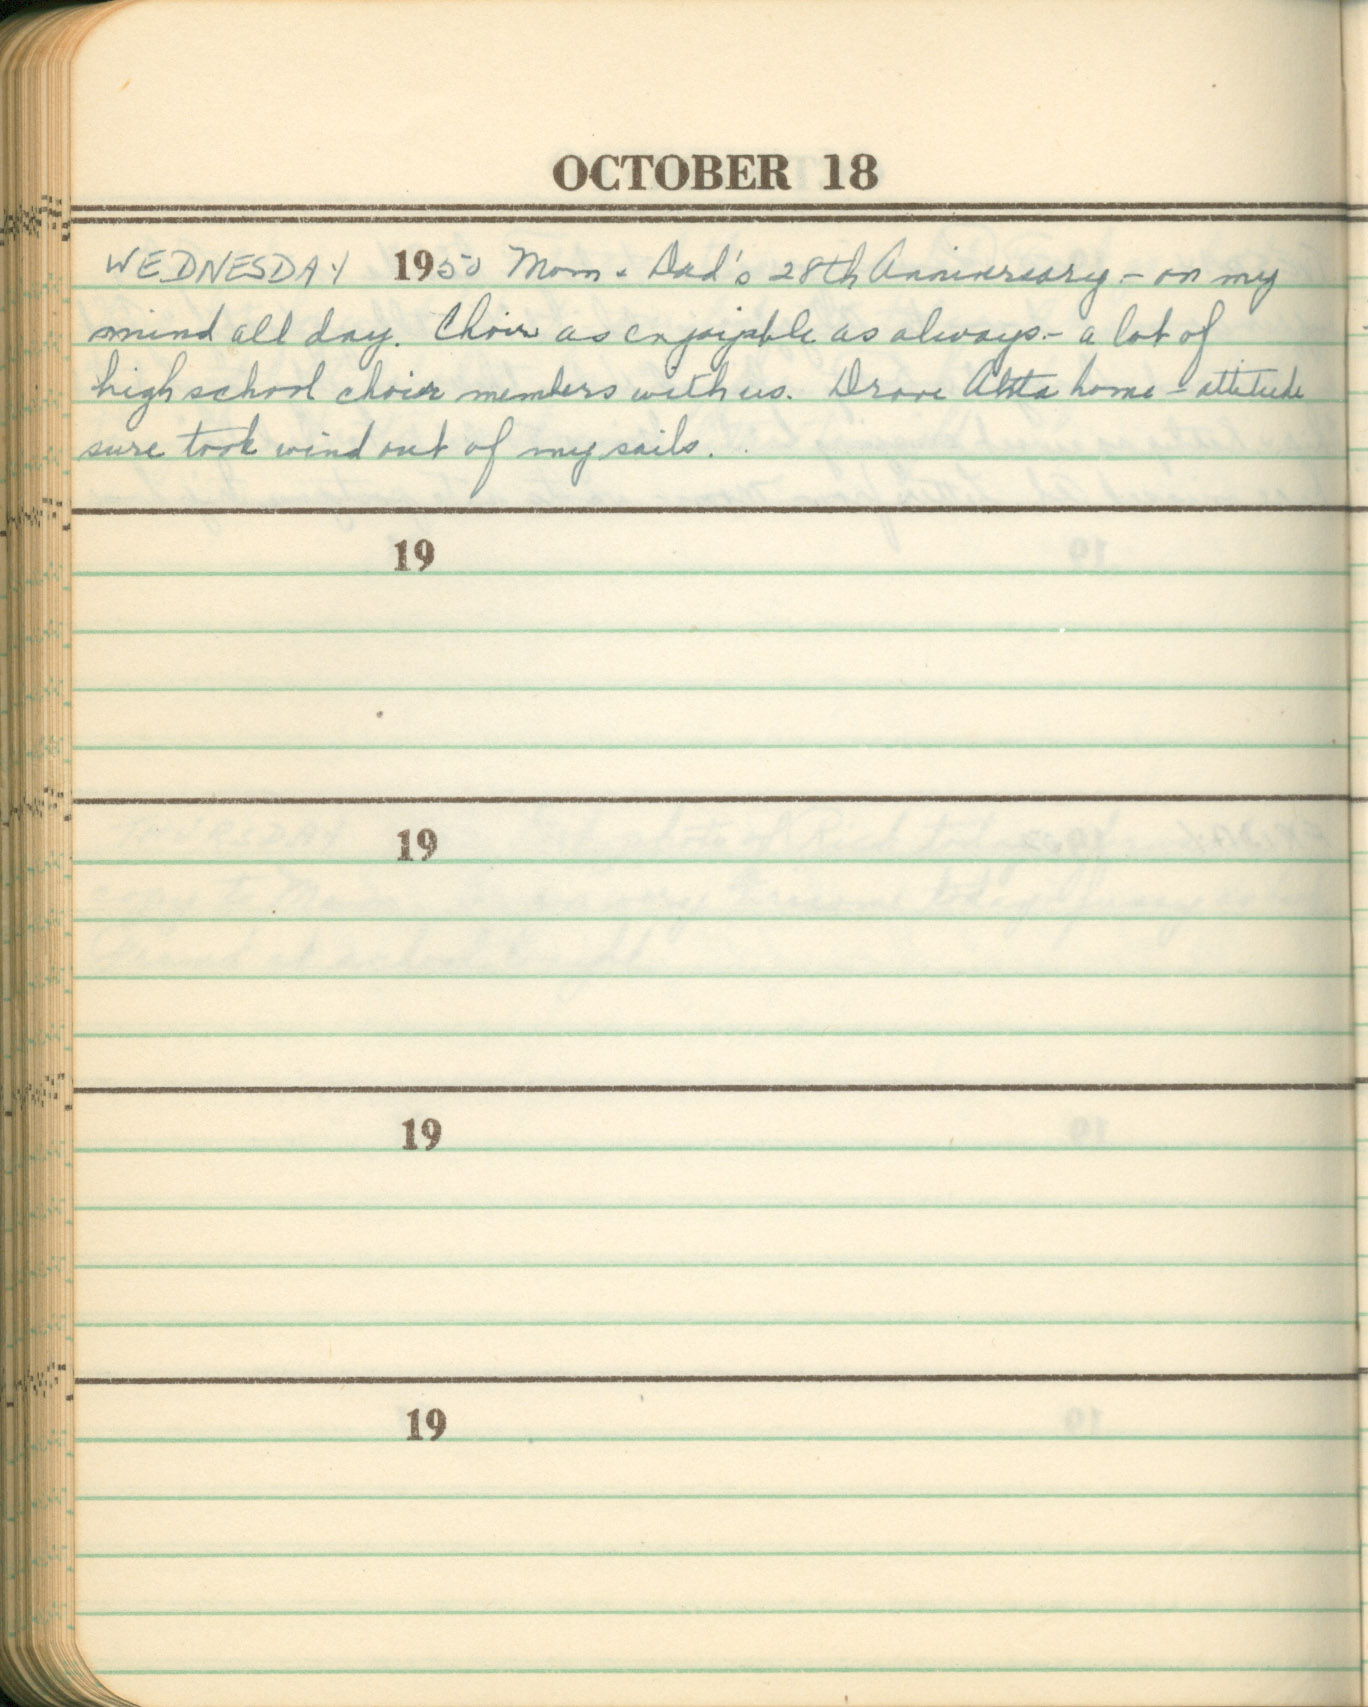 OCTOBER 18
WEDNESDAY 1950 Mom & Dad's 28th Anniversary - on my
mind all day. Choir as enjoyable as always - a lot of
high school choir members with us. Drove home - attitude
sure took wind out of my sails.
19
19
19
19